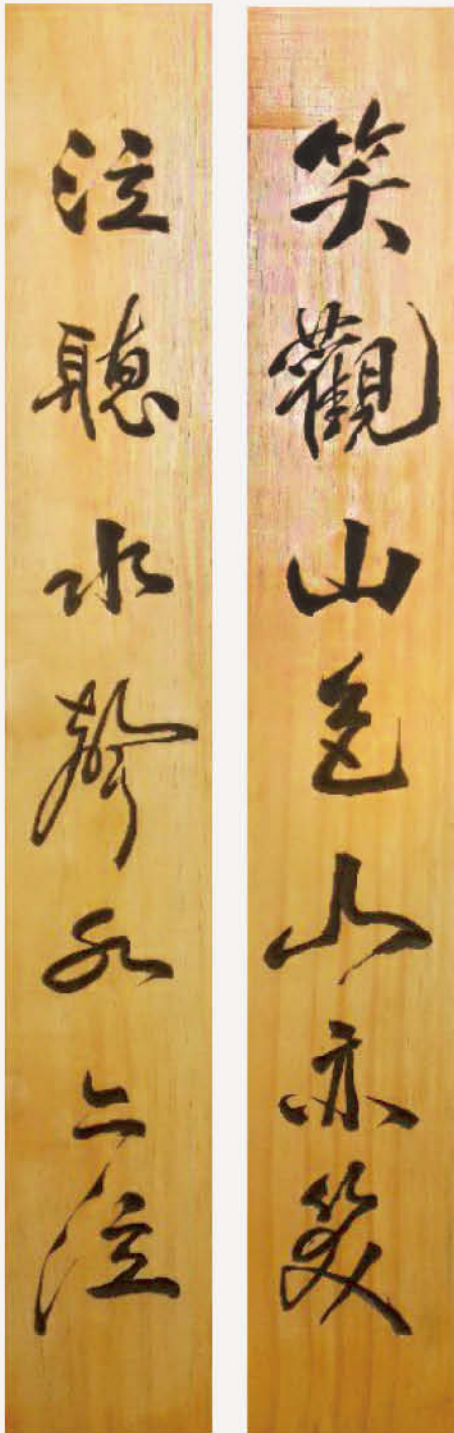 笑觀山色山亦笑
泣聽水聲水亦泣